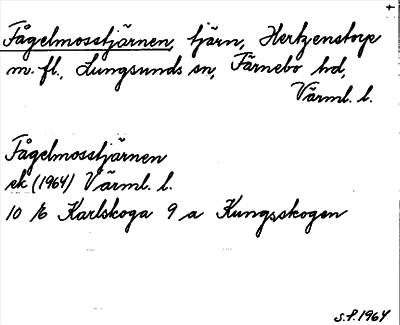 Fågelmosstjärnen, tjärn, Hertzenstorp
m. fl., Lungsunds sn, Färnebo hd,
Värml. l.
Fågelmosstjärnen
ek (1964) Värml. l.
10 E Karlskoga 9 a Kungsskogen
S.F. 1964